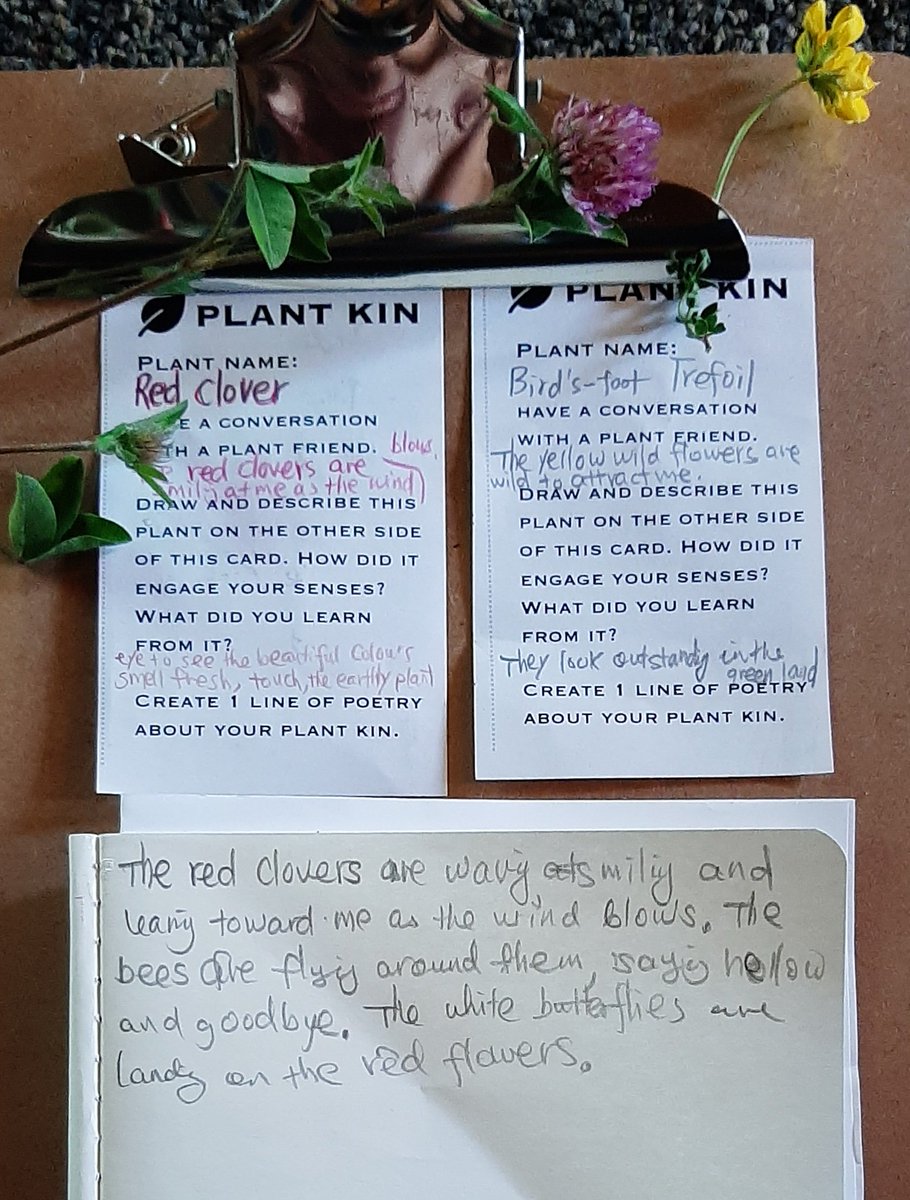 PLANT KIN
PLANT NAME:
Red Clover
E A CONVERSATION
TH A PLANT FRIEND. blows.
red clovers are
at me as the wind
DRAW AND DESCRIBE THIS
PLANT ON THE OTHER SIDE
OF THIS CARD. HOW DID IT
ENGAGE YOUR SENSES?
WHAT DID YOU LEARN
FROM IT?
eye to see the beautiful colours
smell fresh, touch, the earthy plant
CREATE 1 LINE OF POETRY
ABOUT YOUR PLANT KIN.
PLAN KIN
PLANT NAME:
Bird's-foot Trefoil
HAVE A CONVERSATION
WITH A PLANT FRIEND.
The yellow wild flowers are
wild to attract me.
DRAW AND DESCRIBE THIS
PLANT ON THE OTHER SIDE
OF THIS CARD. HOW DID IT
ENGAGE YOUR SENSES?
WHAT DID YOU LEARN
FROM IT?
They look outstandy in the
green land
CREATE 1 LINE OF POETRY
ABOUT YOUR PLANT KIN.
The red clovers are wavig smilig and
leanig toward me as the wind blows. The
bees are flyig around them, sayig hellow
and goodbye. The white butterflies are
landg on the red flowers.